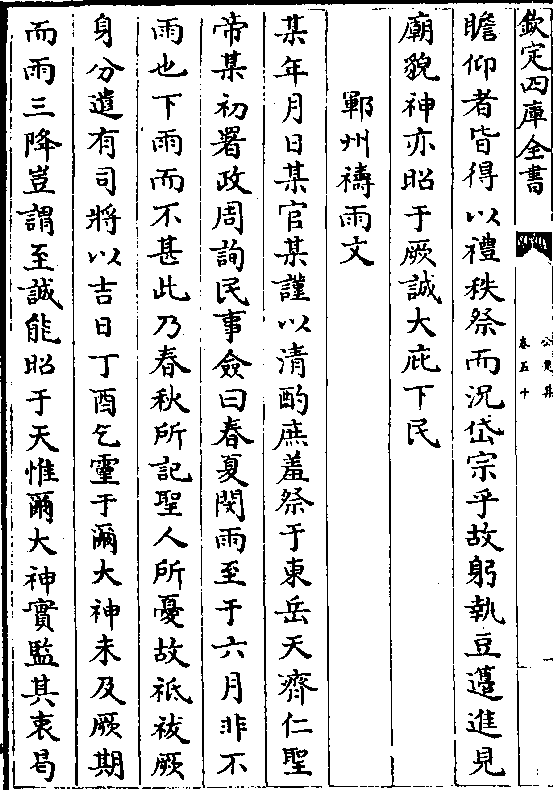 欽定四庫全書
卷五十
瞻仰者皆得以禮秩祭而況岱宗乎故躬執豆籩進見
廟貌神亦昭于厥誠大庇下民
鄆州禱雨文
某年月日某官某謹以清酌庶羞祭于東岳天齊仁聖
帝某初署政周詢民事僉曰春夏閔雨至于六月非不
雨也下雨而不甚此乃春秋所記聖人所憂故祗祓厥
身分遣有司將以吉日丁酉乞靈于爾大神未及厥期
而雨三降豈謂至誠能昭于天惟爾大神實監其衷曷